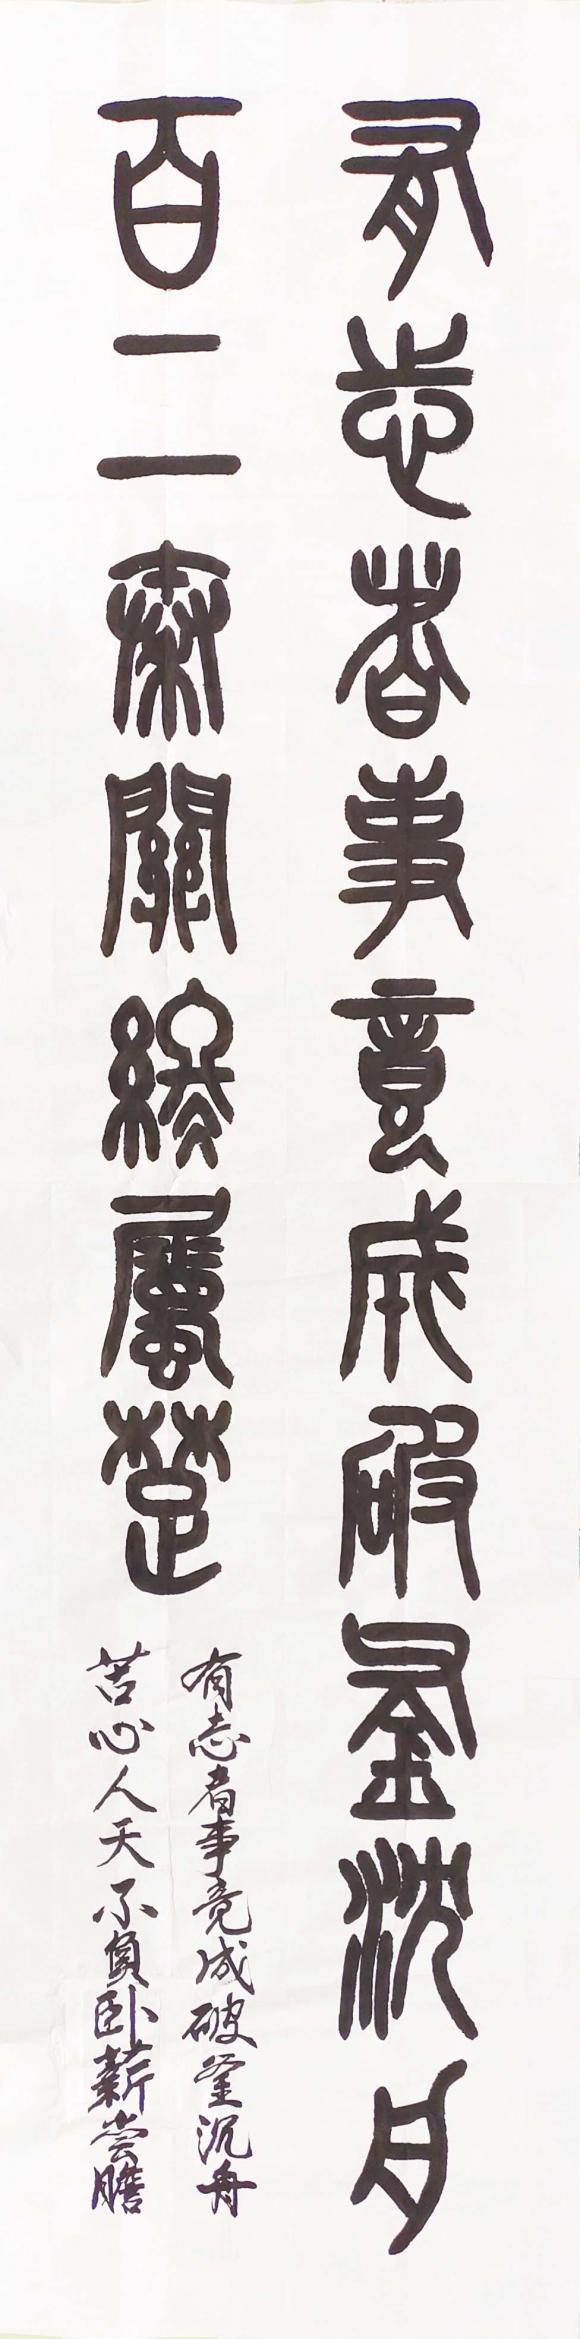 有志者事竟成破釜沈舟
百二秦關終屬楚
有志者事竟成破釜沉舟
苦心人天不負卧薪尝膽